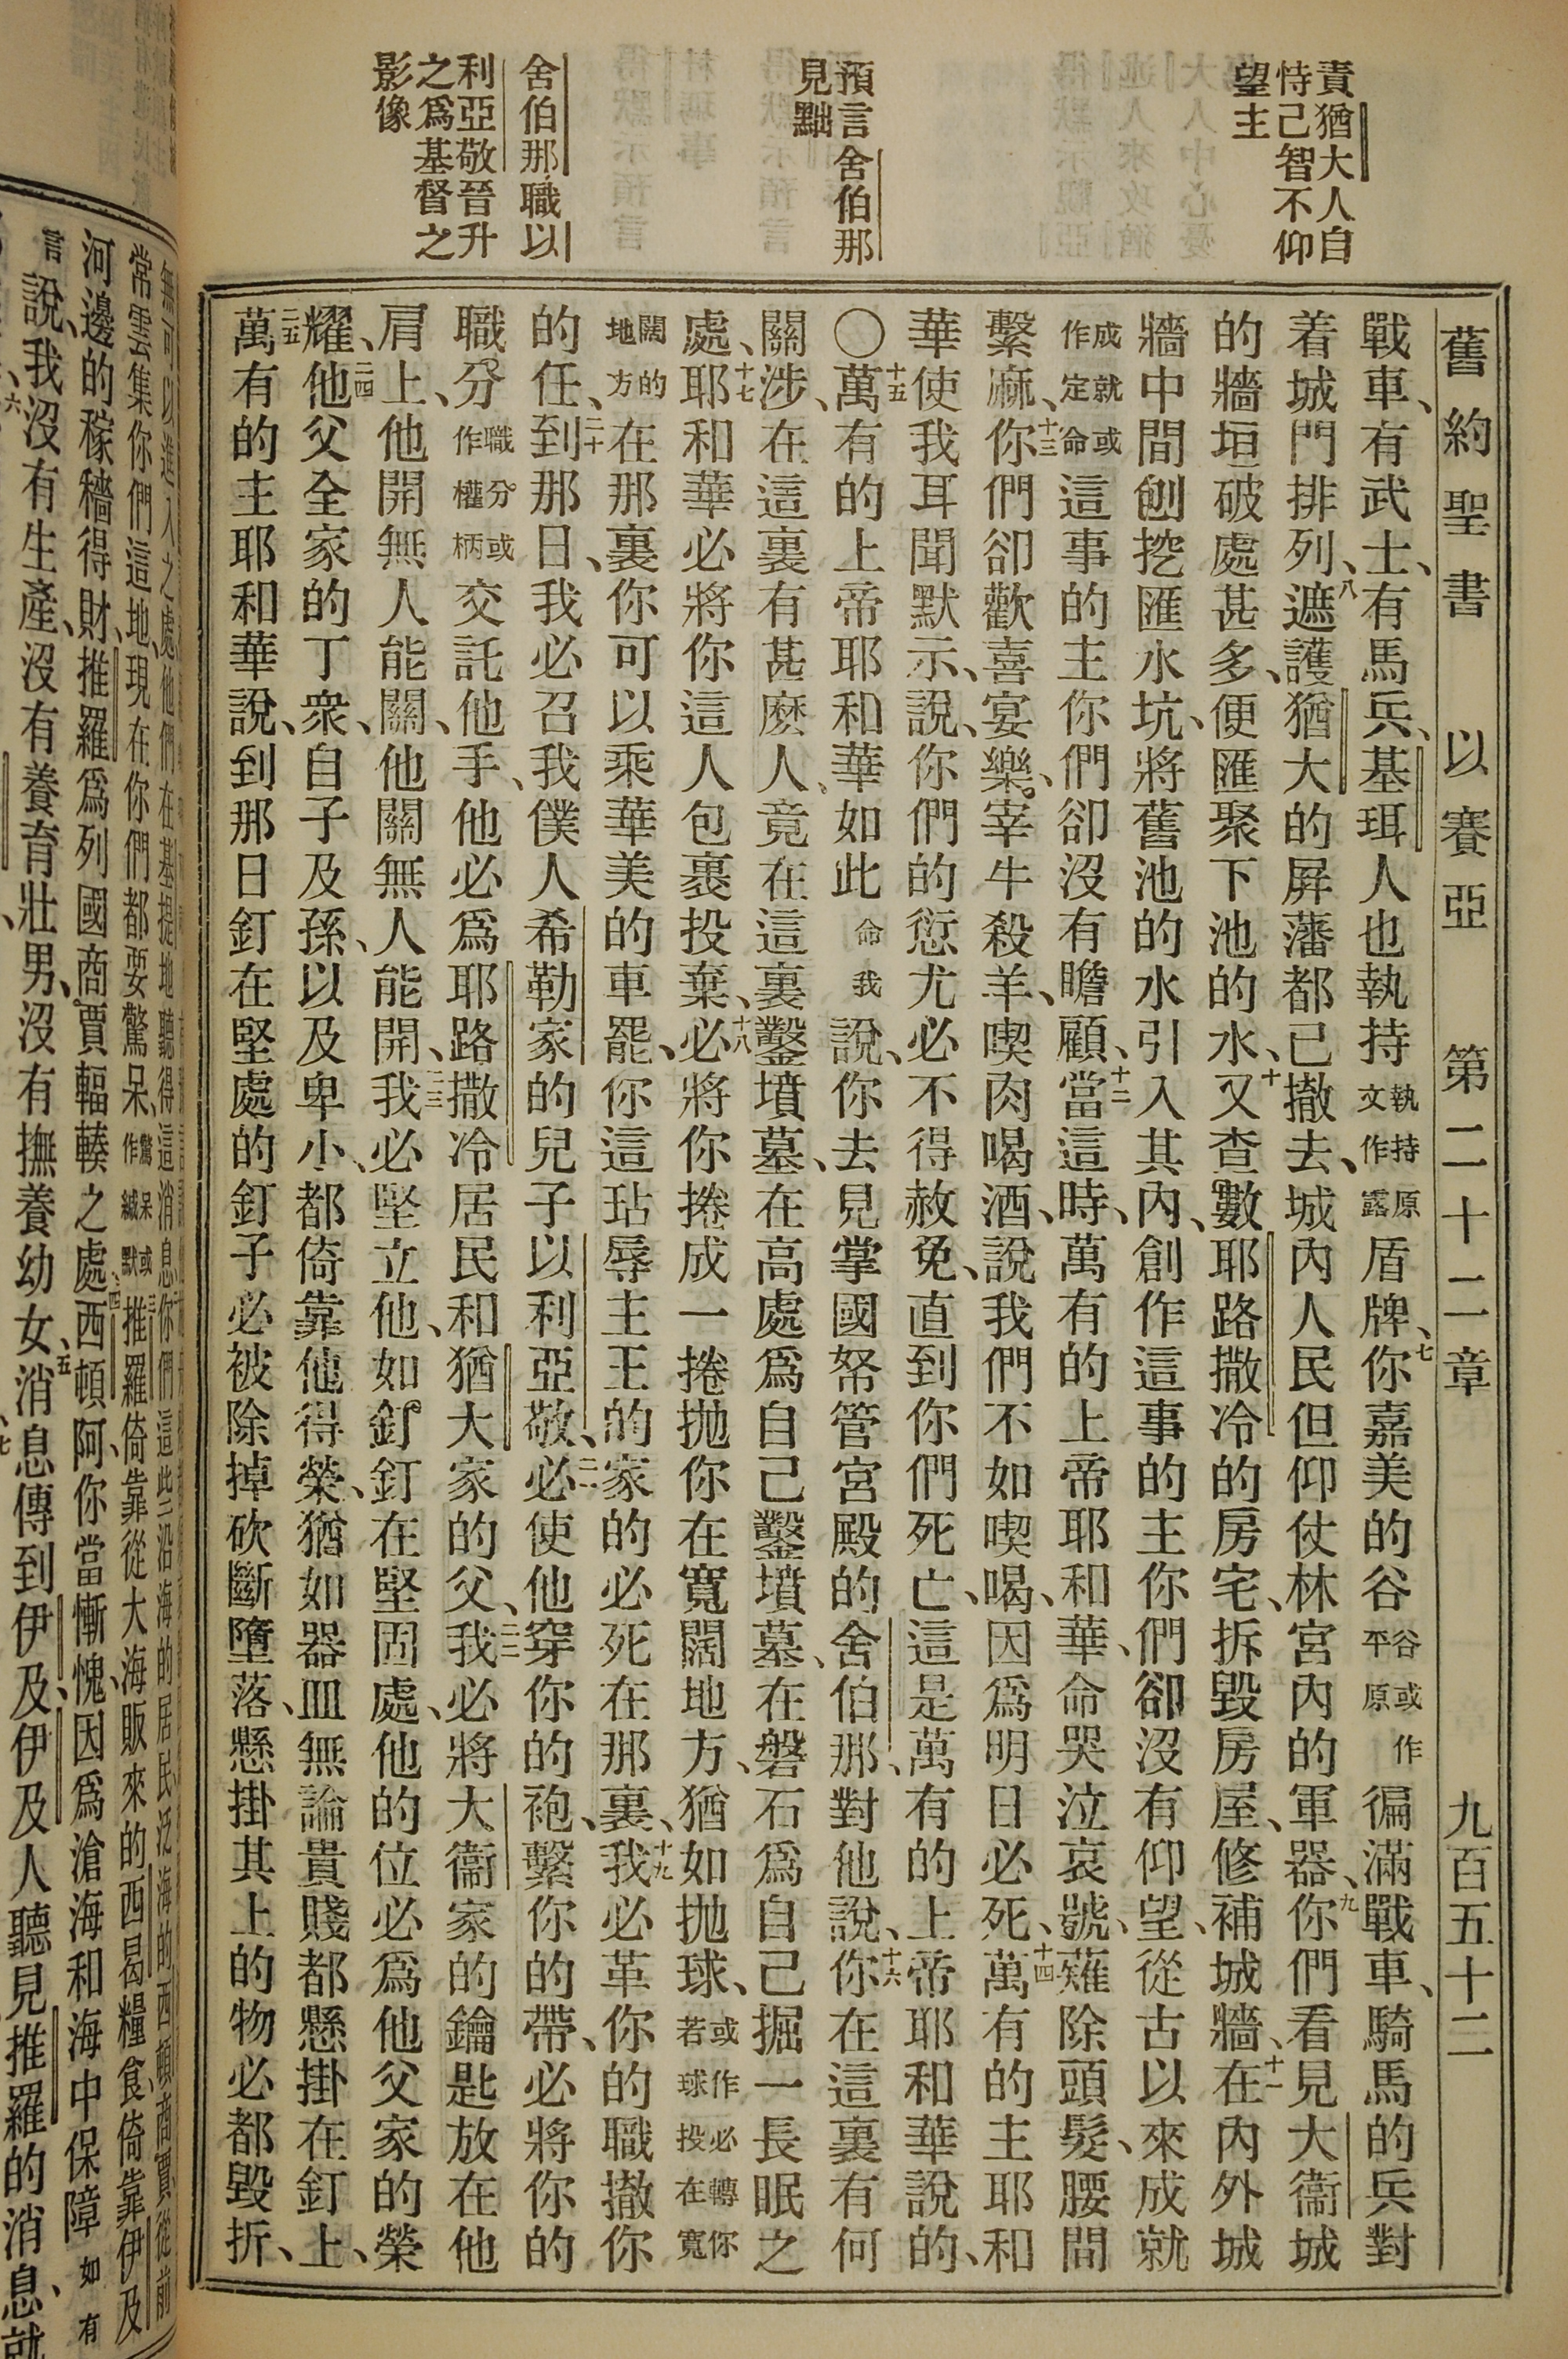 舊約聖書 以賽亞 第二十二章 九百五十二
責猶大人自
恃己智不仰
望主
預言舍伯那
見黜
舍伯那職以
利亞敬晉升
之爲基督之
影像
戰車、有武士、有馬兵、基珥人也執持執持原文作露盾牌、七你嘉美的谷谷或作平原徧滿戰車、騎馬的兵對
着城門排列、八遮護猶大的屏藩都已撤去、城內人民但仰仗林宮內的軍器、九你們看見大衞城
的牆垣破處甚多、便匯聚下池的水、十又查數耶路撒冷的房宅、拆毀房屋、修補城牆、十一在內外城
牆中間刨挖匯水坑、將舊池的水引入其內、創作這事的主你們卻沒有仰望、從古以來成就
成就或作定命這事的主你們卻沒有瞻顧、十二當這時、萬有的上帝耶和華、命哭泣哀號、薙除頭髮、腰間
繫麻、十三你們卻歡喜宴樂、宰牛殺羊、喫肉喝酒、說我們不如喫喝、因爲明日必死、十四萬有的主耶和
華使我耳聞默示、說、你們的愆尤必不得赦免、直到你們死亡、這是萬有的上帝耶和華說的、
〇十五萬有的上帝耶和華如此命我說、你去見掌國帑管宮殿的舍伯那、對他說、十六你在這裏有何
關涉、在這裏有甚麽人、竟在這裏鑿墳墓、在高處爲自己鑿墳墓、在磐石爲自己掘一長眠之
處、十七耶和華必將你這人包裹投棄、十八必將你捲成一捲抛你在寬闊地方、猶如抛球、或作必轉你若球投在寬
闊的地方在那裏你可以乘華美的車罷、你這玷辱主王的家的必死在那裏、十九我必革你的職撤你
的任、二十到那日、我必召我僕人希勒家的兒子以利亞敬、二一必使他穿你的袍、繫你的帶、必將你的
職分職分或作權柄交託他手、他必爲耶路撒冷居民和猶大家的父、二二我必將大衞家的鑰匙放在他
肩上、他開無人能關、他關無人能開、二三我必堅立他、如釘釘在堅固處、他的位必爲他父家的榮
耀、二四他父全家的丁衆、自子及孫、以及卑小、都倚靠他得榮、猶如器皿無論貴賤都懸掛在釘上、
二五萬有的主耶和華說、到那日釘在堅處的釘子必被除掉砍斷墮落、懸掛其上的物必都毀折、
無可以進入之處他們在基提地聽得這消息、你們這些沿海的居民、泛海的西頓商賈、從前
常雲集你們這地、現在你們都要驚呆、驚呆或作緘默推羅倚靠從大海販來的西曷糧食、倚靠伊及
河邊的稼穡得財、推羅爲列國商賈輻輳之處、四西頓阿、你當慚愧、因爲滄海和海中保障如有
言說、我沒有生產、沒有養育壯男、沒有撫養幼女、五消息傳到伊及、伊及人聽見推羅的消息、就